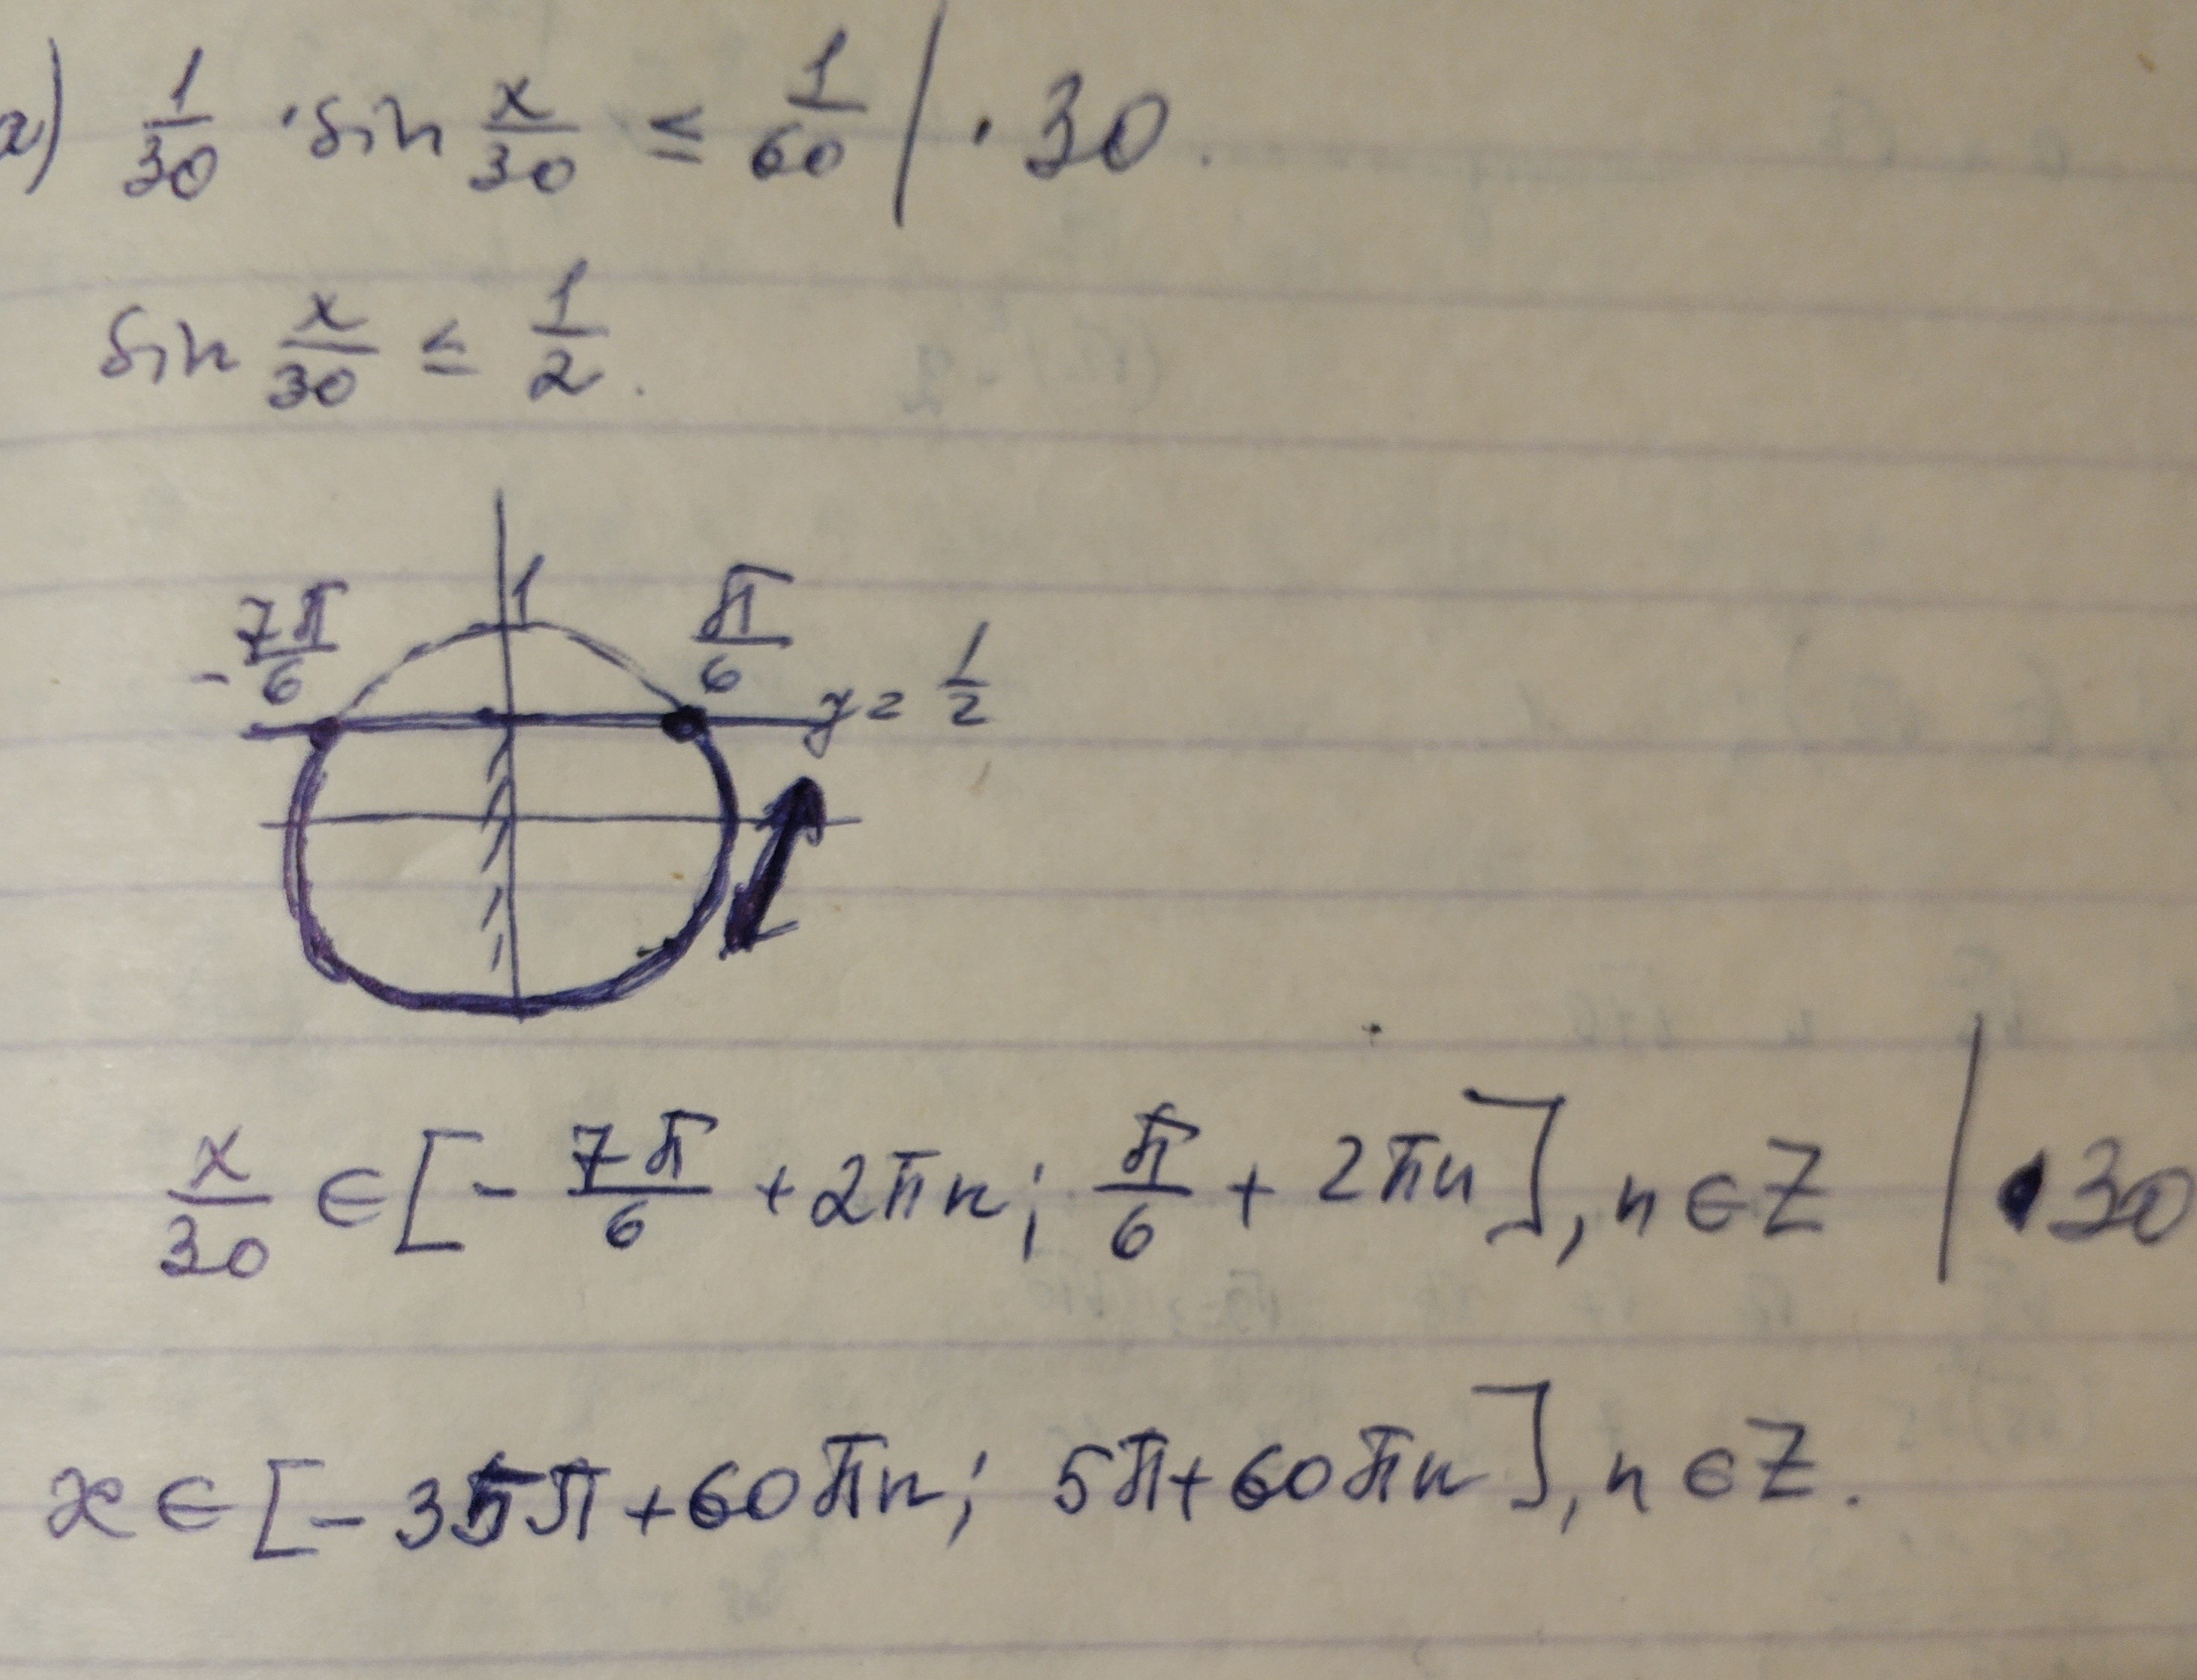 а) 1/30 · sin x/30 ≤ 1/60 | · 30.
sin x/30 ≤ 1/2.
1
-7π/6 π/6
y = 1/2
x/30 ∈ [- 7π/6 + 2πn; π/6 + 2πn], n ∈ Z | · 30
x ∈ [- 35π + 60πn; 5π + 60πn], n ∈ Z.